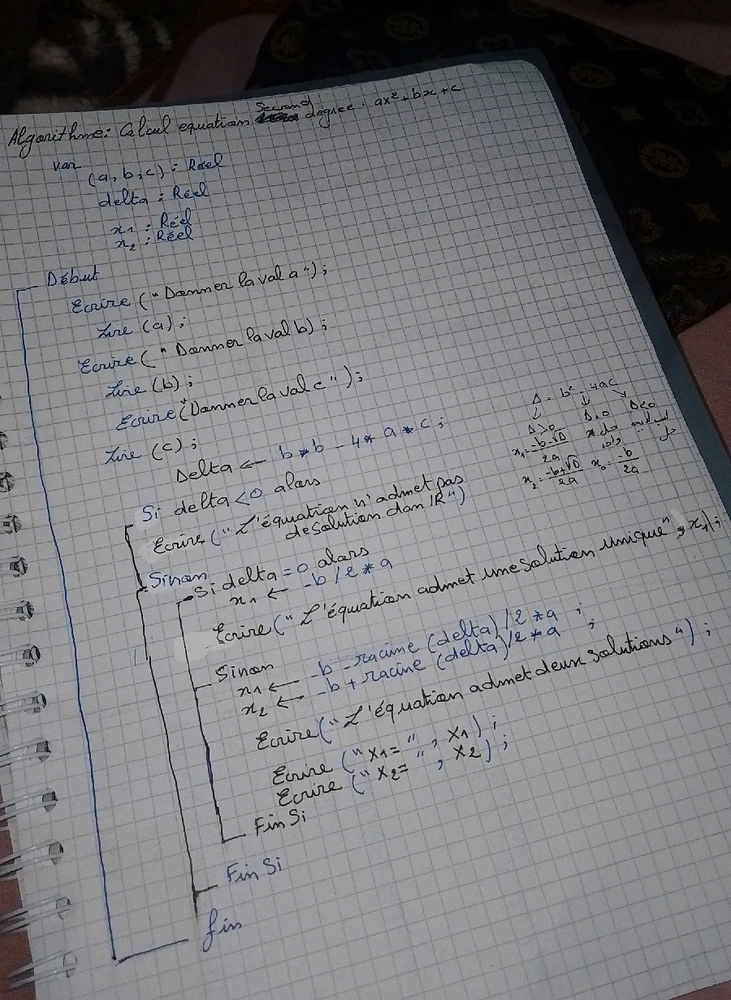 Algorithme: Calcul equation Second degree: ax²+bx+c
var
(a, b, c) : Réel
delta : Réel
x1 : Réel
x2 : Réel
Début
Ecrire ("Donner la val a");
Lire (a);
Ecrire ("Donner la val b);
Lire (b);
Ecrire ("Donner la val c");
Lire (c);
Delta ← b*b-4*a*c;
Si delta <0 alors
Ecrire ("L'équation n'admet pas
de solution dan IR")
Sinon
Si delta=0 alors
x1 ← -b/2*a
Ecrire ("L'équation admet une solution unique", x1);
Sinon
x1 ← -b-racine (delta)/2*a ;
x2 ← -b+racine (delta)/2*a ;
Ecrire ("L'équation admet deux solutions");
Ecrire ("x1= ", x1);
Ecrire ("x2= ", x2);
Fin Si
Fin Si
fin
Δ = b²-4ac
Δ>0 Δ=0 Δ<0
x1=-b-√Δ/2a
x2=-b+√Δ/2a x0=-b/2a